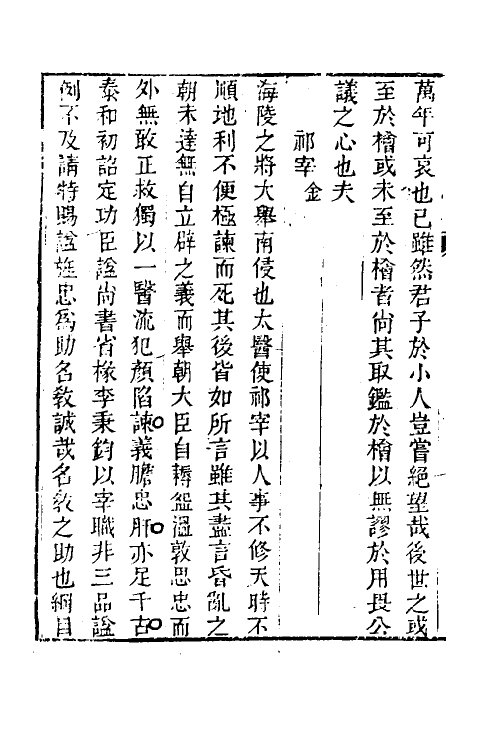 萬年可哀也已雖然君子於小人豈嘗絕望哉後世之或
至於檜或未至於檜者尚其取鑑於檜以無謬於用畏公
議之心也夫
祁宰金
海陵之將大舉南侵也太醫使祁宰以人事不修天時不
順地利不便極諫而死其後皆如所言雖其盡言昏亂之
朝未達無自立辟之義而舉朝大臣自耨盌溫敦思忠而
外無敢正救獨以一醫流犯顏陷諫義膽忠肝亦足千古
泰和初詔定功臣諡尚書省掾李秉鈞以宰職非三品諡
例不及請特賜諡旌忠爲助名敎誠哉名敎之助也綱目